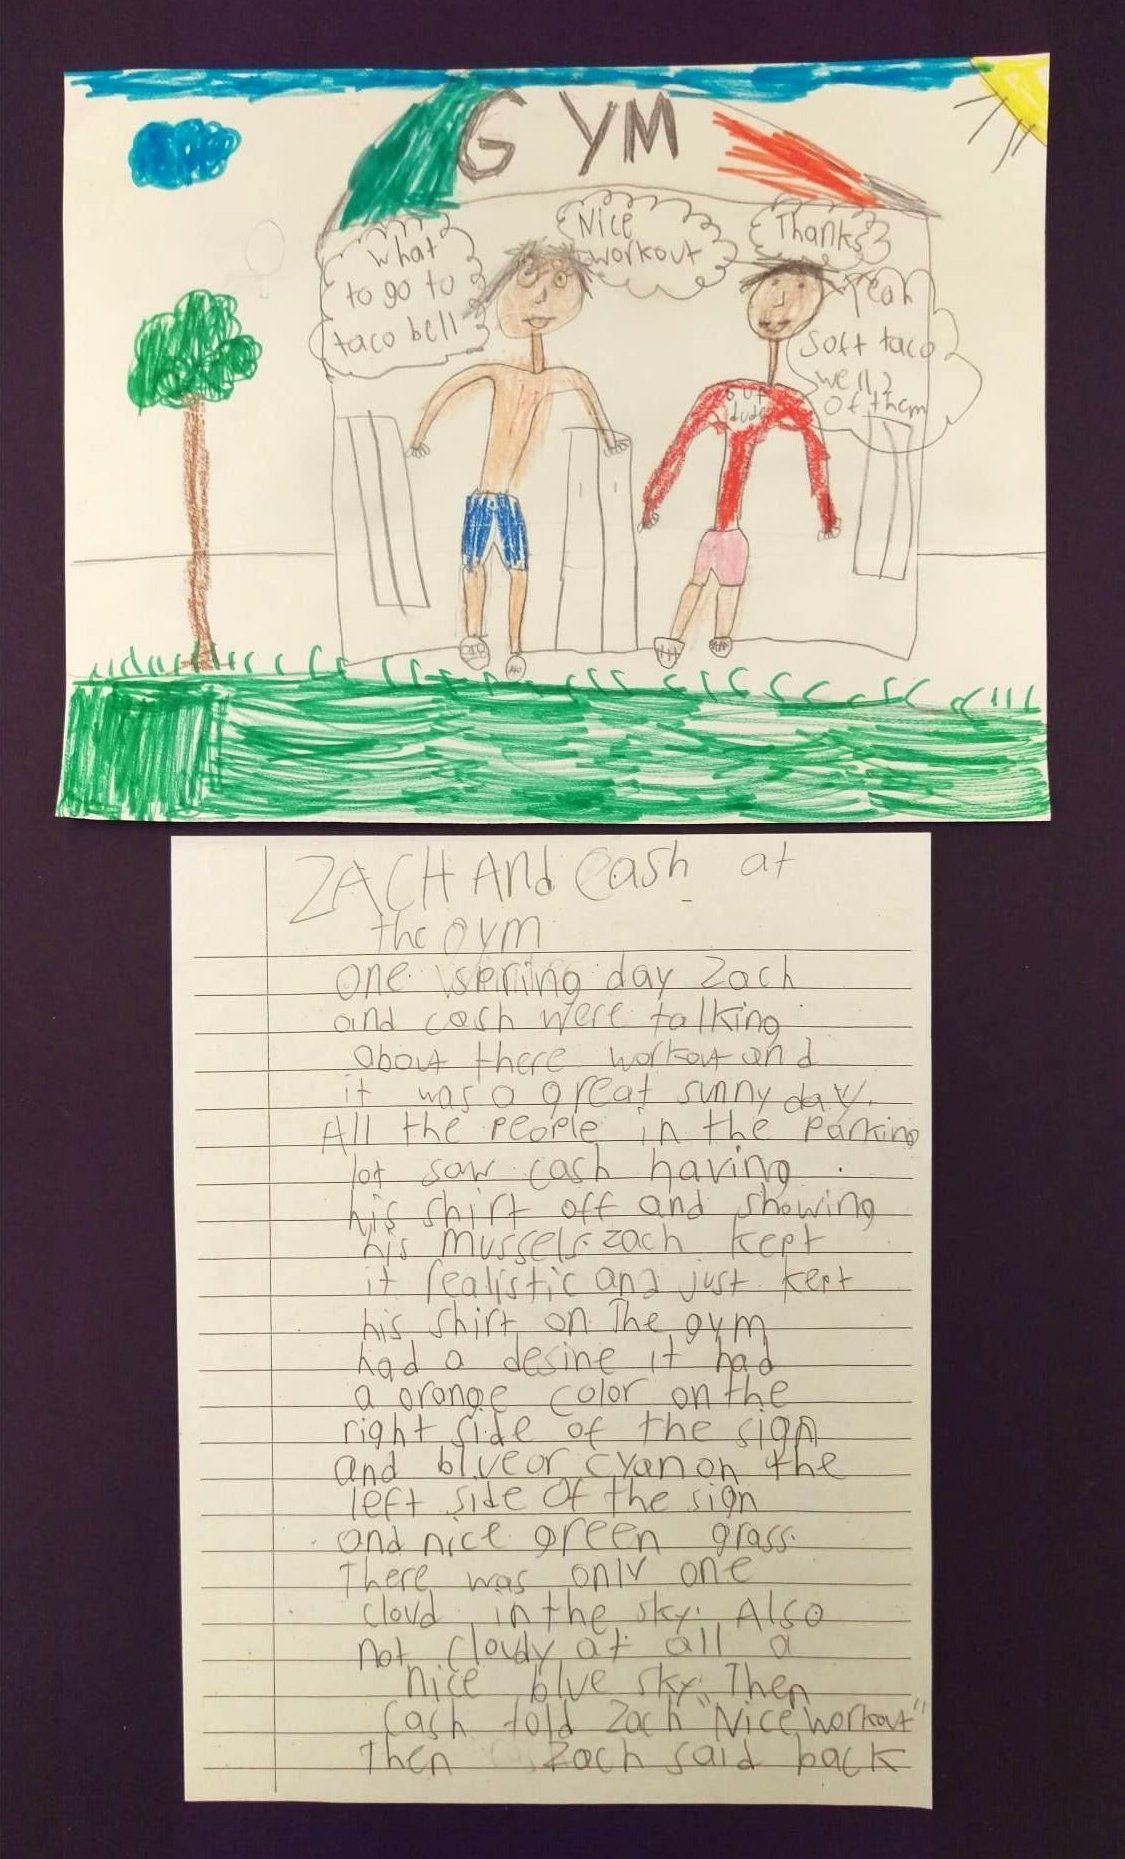 GYM
what
to go to
taco bell
Nice
workout
Thanks
Yeah
soft taco
well 2
of them
dude
ZACH And Cash at
the gym
one spring day Zach
and cash were talking
about there workout and
it was a great sunny day.
All the people in the parking
lot saw cash having
his shirt off and showing
his mussels. zach kept
it realistic and just kept
his shirt on. The gym
had a desine it had
a orange color on the
right side of the sign
and blue or cyan on the
left side of the sign
and nice green grass.
There was only one
cloud in the sky. Also
not cloudy at all a
nice blue sky. Then
Cash told Zach "Nice workout"
Then Zach said back